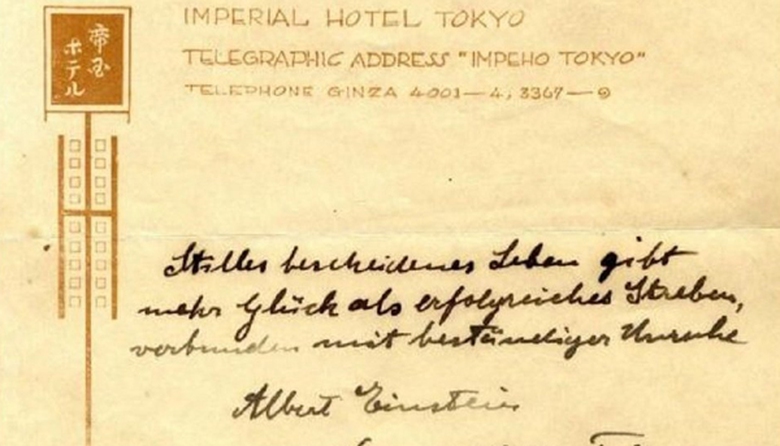 IMPERIAL HOTEL TOKYO
TELEGRAPHIC ADDRESS "IMPEHO TOKYO"
TELEPHONE GINZA 4001—4, 3367—9
帝国
ホテル
Stilles bescheidenes Leben gibt
mehr Glück als erfolgreiches Streben,
verbunden mit beständiger Unruhe
Albert Einstein